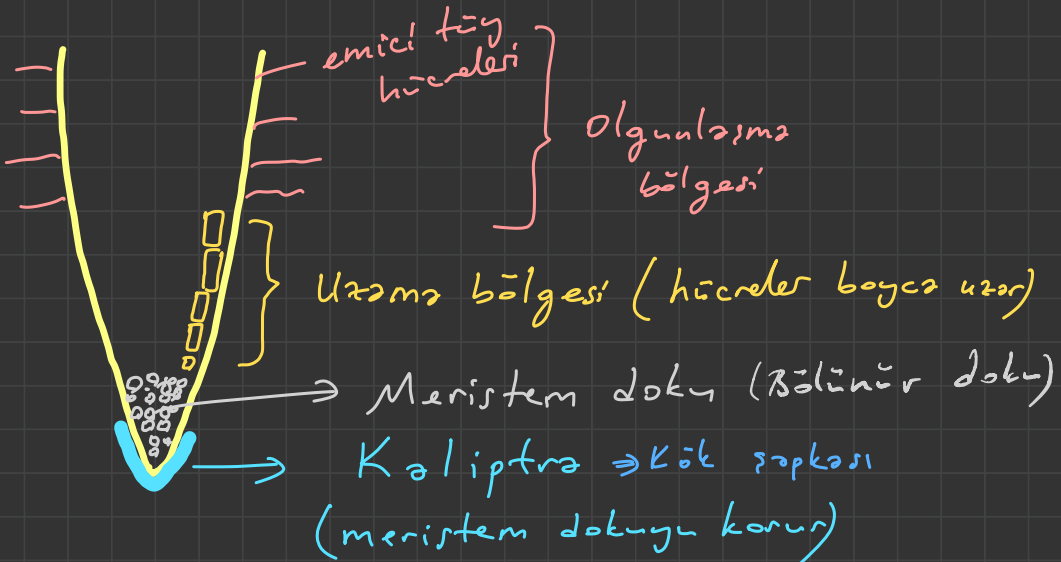 emici tüy
hücreleri
Olgunlaşma
bölgesi
Uzama bölgesi (hücreler boyca uzar)
Meristem doku (Bölünür doku)
Kaliptra ⇒ Kök şapkası
(meristem dokuyu korur)